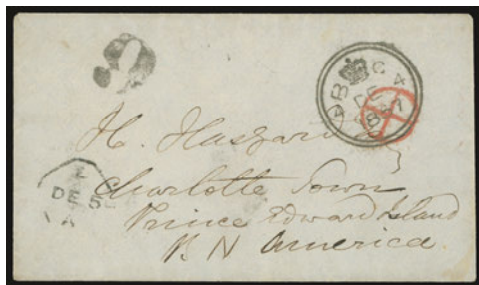 9
B C 4
DE
1857
A
H. Haszard
DE 5
Charlotte Town
Prince Edward Island
B. N America.